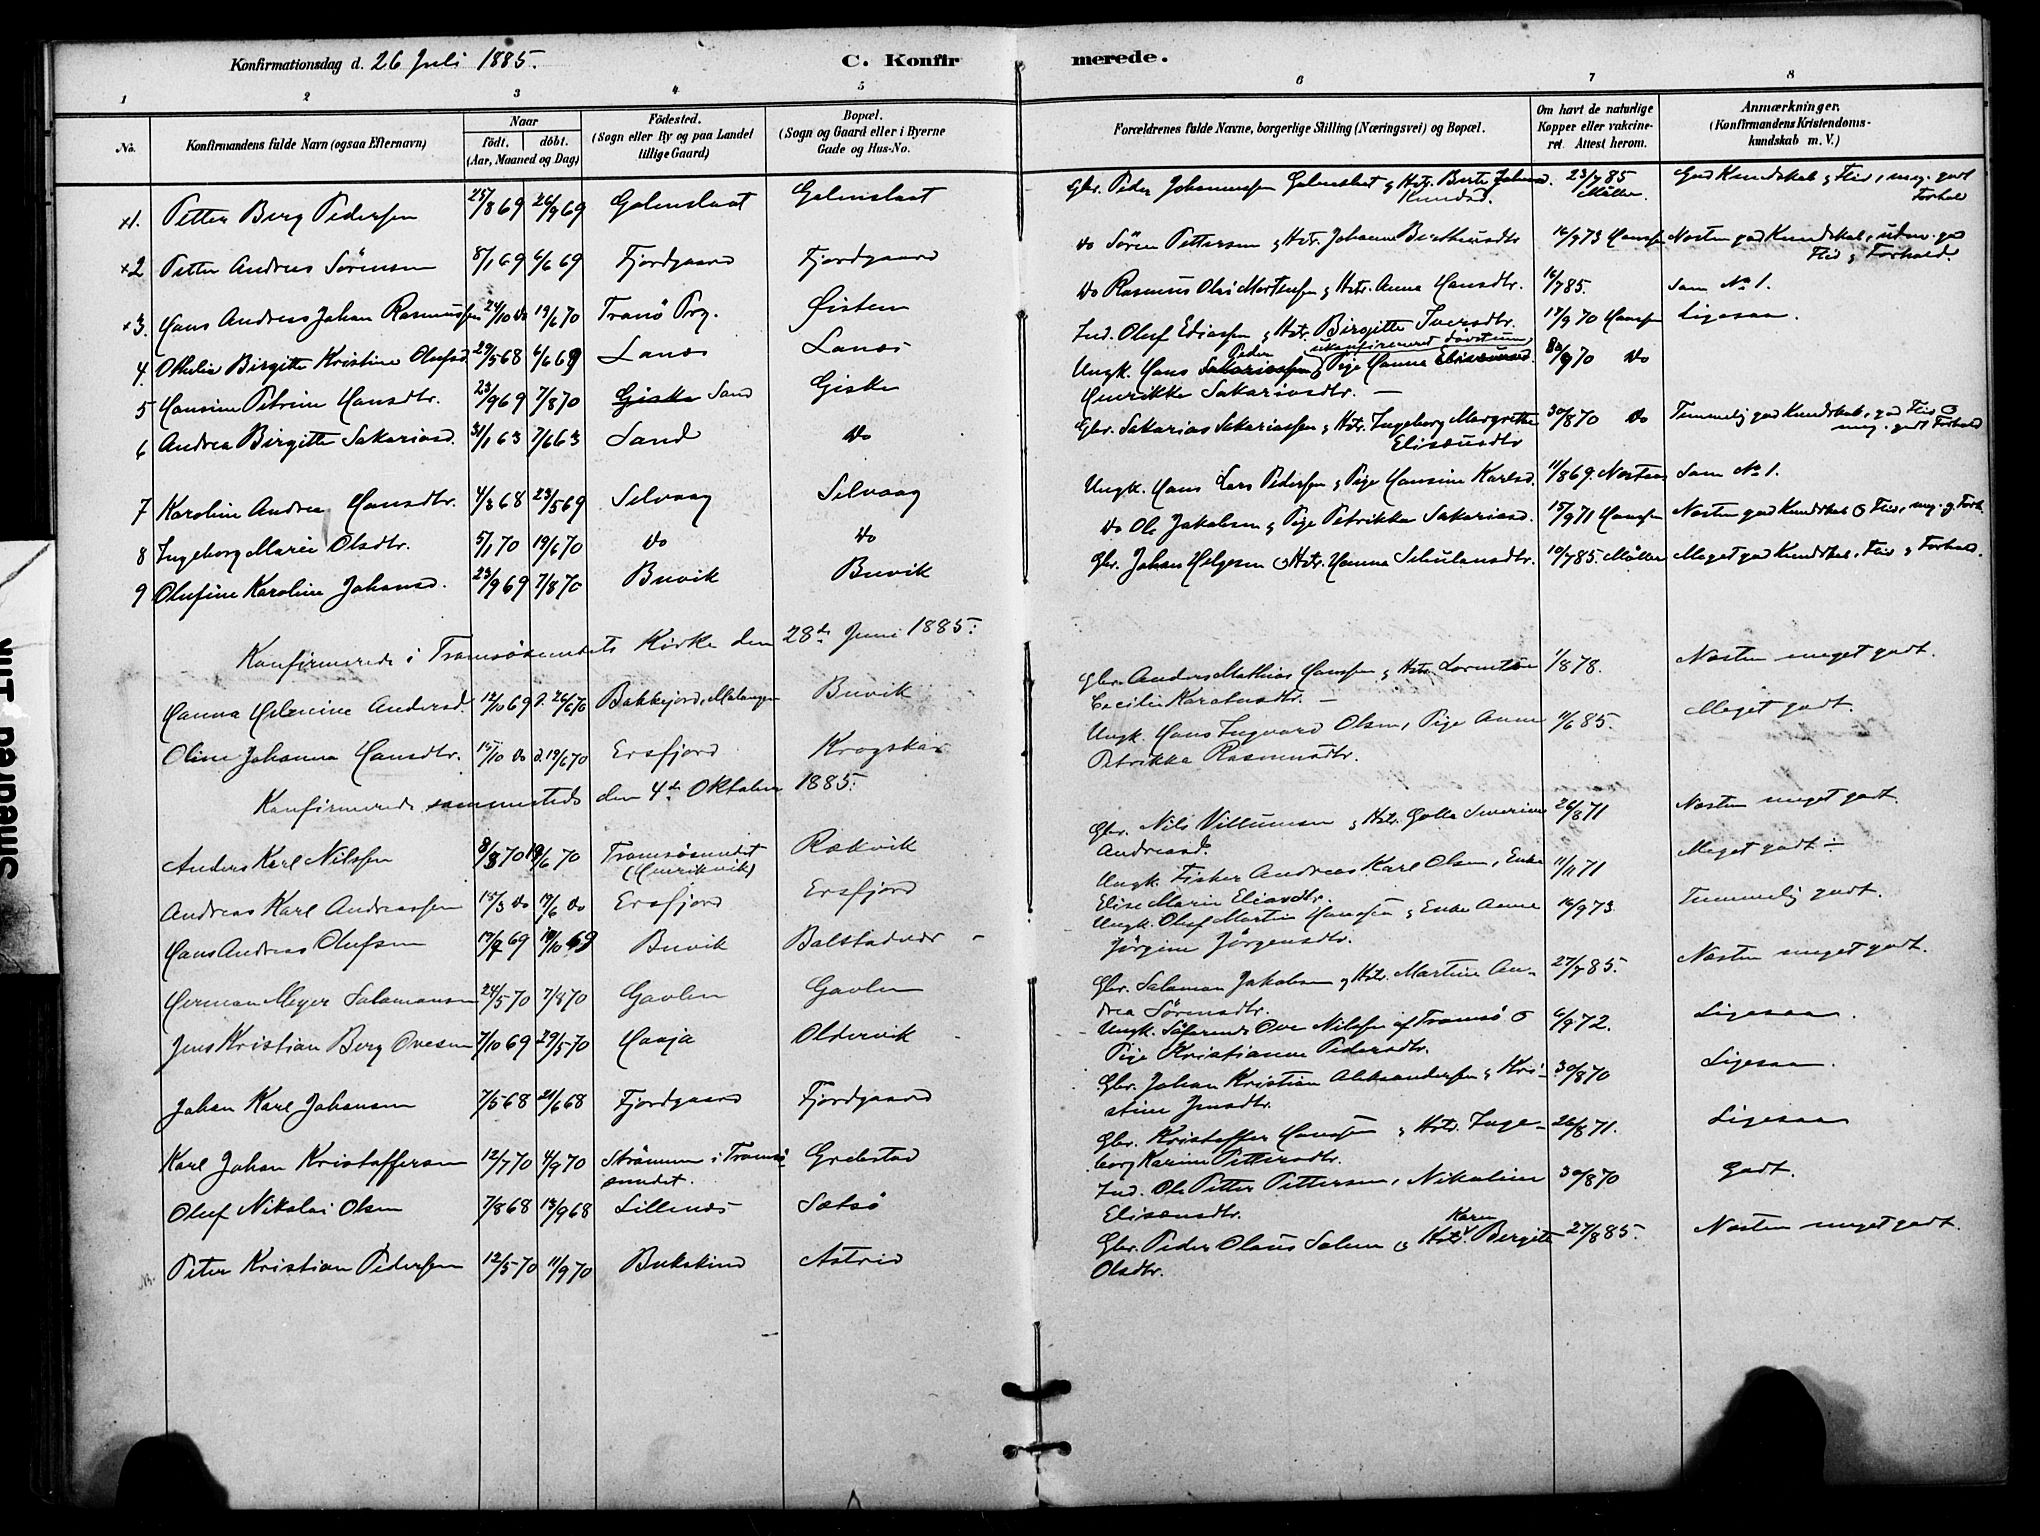 Konfirmationsdag d. 26 Juli 1885.
C. Konfirmerede.
1 2 3 4 5 6 7 8
No. Konfirmandens fulde Navn (ogsaa Efternavn) Naar født. døbt. (Aar, Maaned og Dag) Fødested. (Sogn eller By og paa Landet tillige Gaard) Bopæl. (Sogn og Gaard eller i Byerne Gade og Hus-No. Forældrenes fulde Navne, borgerlige Stilling (Næringsvei) og Bopæl. Om havt de naturlige Kopper eller vakcineret. Attest herom. Anmærkninger. (Konfirmandens Kristendomskundskab m. V.)
x1. Petter Berg Pedersen 25/8 69 26/9 69 Golmslaat Golmslaat Gbr. Peder Johannessen Golmslaat & Hstr. Berte Johanna Knudsd. 23/7 85 Møller. God Kundskab & Flid, meg. godt Forhold
x2 Petter Andreas Sørensen 8/1 69 6/6 69 Fjordgaard Fjordgaard do Søren Pettersen & Hstr. Johanna Bertheusdtr 16/9 73 Hanssen Næsten god Kundskab, udm. god Flid & Forhold.
x3. Hans Andreas Johan Rasmussen 24/10 do 19/6 70 Tranø Prg. Øisten do Rasmus Olai Mortensen & Hstr. Anna Hansdtr. 16/7 85. Som No 1.
4. Othelie Birgitte Kristine Olufsd 29/5 68 6/6 69 Lanes Lanes Ind. Oluf Ediassen & Hstr. Birgitte Iversdtr. 17/9 70 Hanssen Ligesaa.
5 Hansine Petrine Hansdtr. 23/9 69 7/8 70 Giske Sand Giske Ungk. Hans Peder Sakariassen & Pige Hanna Elisæusd. ukonfirmeret Henrikke Sakariasdtr. — 30/8 70 do
6 Andrea Birgitte Sakariasd. 31/1 63 7/6 63 Sand do Gbr. Sakarias Sakariassen & Hstr. Ingeborg Margrethe Elisæusdtr 30/8 70 do Temmelig god Kundskab, god Flid & meg. godt Forhold
7 Karoline Andrea Hansdtr. 4/3 68 23/5 69 Selvaag Selvaag Ungk. Hans Lars Pedersen & Pige Hansine Karlsd. 11/8 69. Som No 1.
8 Ingeborg Marie Olsdtr. 5/1 70 19/6 70 do do do Ole Jakobsen & Pige Petrikke Sakariasd. 15/9 71 Hanssen Næsten god Kundskab & Flid, meg. g. Forh.
9 Olufine Karoline Johansd. 23/9 69 7/8 70 Buvik Buvik Gbr. Johan Helgesen & Hstr. Hanna 10/7 85. Møller Meget god Kundskab, Flid & Forhold.
Konfirmerede i Tromsøsundets Kirke den 28de Juni 1885:
Hanna Helmine Andersd. 12/10 69 d. 26/6 70 Bakkejord, Malangen Buvik Gbr. Anders Mathias Hanssen & Hstr. Lorentse Cecilie — 1/8 78. Næsten meget godt.
Oline Johanna Hansdtr. 15/10 do d. 19/6 70 Ersfjord Krogskar Ungk. Hans Ingvard Olsen, Pige Anne Petrikke Rasmusdtr. 11/6 85. Meget godt.
Konfirmerede sammesteds den 4de Oktober 1885:
Anders Karl Nilssen 8/3 70 19/6 70 Tromsøsundet (Henrikvik) Rækvik Gbr. Nils Villumsen & Hstr. Golla Severine Andreasd. 26/8 71 Næsten meget godt.
Andreas Karl Andreassen 15/3 do 19/6 do Ersfjord Ersfjord Ungk. Fisker Andreas Karl Olsen, Enke Elise Marie Eliasdtr. 11/11 71 Meget godt —
Hans Andreas Olufsen 17/7 69 10/10 69 Buvik Balstadvær Ungk. Oluf Martin Hanssen & Enke Anne Jørgine Jørgensdtr. 16/9 73. Temmelig godt.
Herman Meyer Salamonsen 24/5 70 7/8 70 Gavlen Gavlen Gbr. Salamon Jakobsen & Hstr. Martine Andrea Sørensdtr. 27/7 85. Næsten meget godt.
Jens Kristian Berg Ovesen 7/10 69 29/5 70 Havja Oldervik Ungk. Søfarende Ove Nilssen af Tromsø & Pige Kristianne Pedersdtr. 6/9 72. Ligesaa.
Johan Karl Johansen 7/5 68 21/6 68 Fjordgaard Fjordgaard Gbr. Johan Kristian Aleksandersen & Kristine Jensdtr. 30/8 70 Ligesaa.
Karl Johan Kristoffersen 12/7 70 4/9 70 Strømmen i Tromsøsundet. Grøbstad Gbr. Kristoffer Hanssen & Hstr. Ingeborg Karine Pettersdtr. 26/8 71. Ligesaa
Oluf Nikolai Olsen 7/8 68 13/9 68 Lillenes Sætsø Ind. Ole Petter Pettersen, Nikoline Elisæusdtr. 30/8 70 Godt.
Peter Kristian Pedersen 12/5 70 11/9 70 Bukskind Astrid Gbr. Peder Olaus Solem & Hstr. Karen Bergitte Olsdtr. 27/8 85. Næsten meget godt.